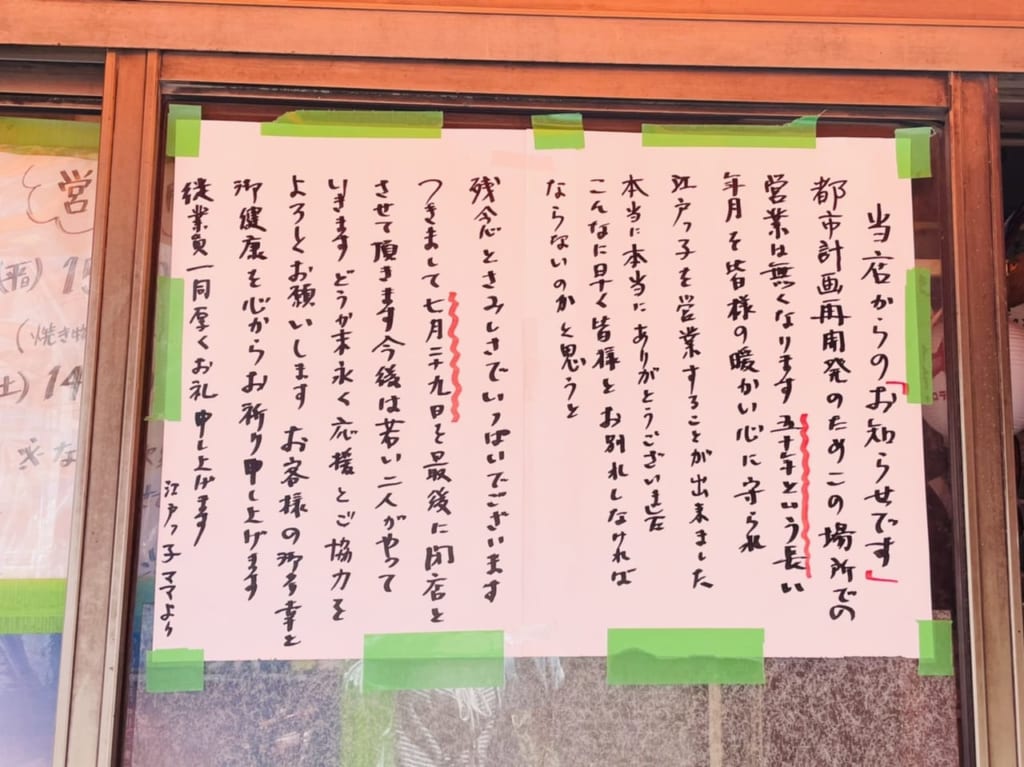 当店からの「お知らせです」
都市計画再開発のためこの場所での
営業は無くなります 五十年という長い
年月を皆様の暖かい心に守られ
江戸っ子を営業することが出来ました
本当に本当にありがとうございました
こんなに早く皆様とお別れしなければ
ならないのかと思うと
残念ときみしさでいっぱいでございます
つきまして七月二十九日を最後に閉店と
させて頂きます 今後は若い二人がやって
いきます どうか末永く応援とご協力を
よろしくお願いします お客様の御多幸と
御健康を心からお祈り申し上げます
従業員一同厚くお礼申し上げます
江戸っ子ママより
営
(平日) 15
(焼き物
土) 14
※な